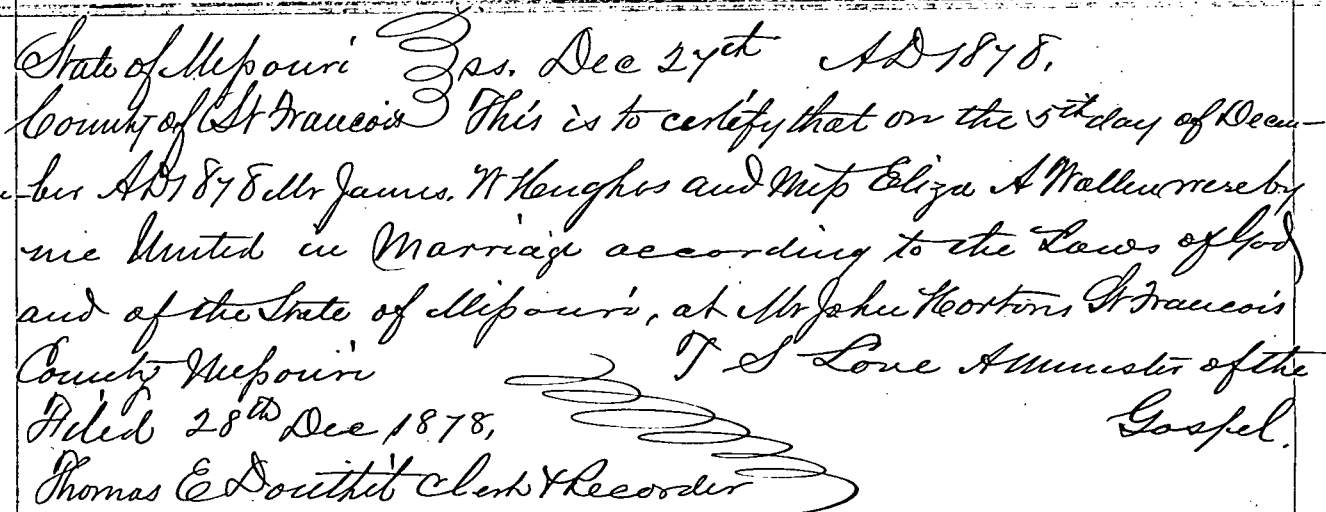 State of Missouri } ss. Dec 27th AD 1878.
County of St Francois } This is to certify that on the 5th day of Decem-
-ber AD 1878 Mr James. W Hughos and Miss Eliza A Wallen were by
me United in Marriage according to the Laws of God
and of the State of Missouri, at Mr John Hortons St Francois
County Missouri T S Love A Minister of the
Filed 28th Dec 1878, Gospel.
Thomas E Douthit Clerk & Recorder